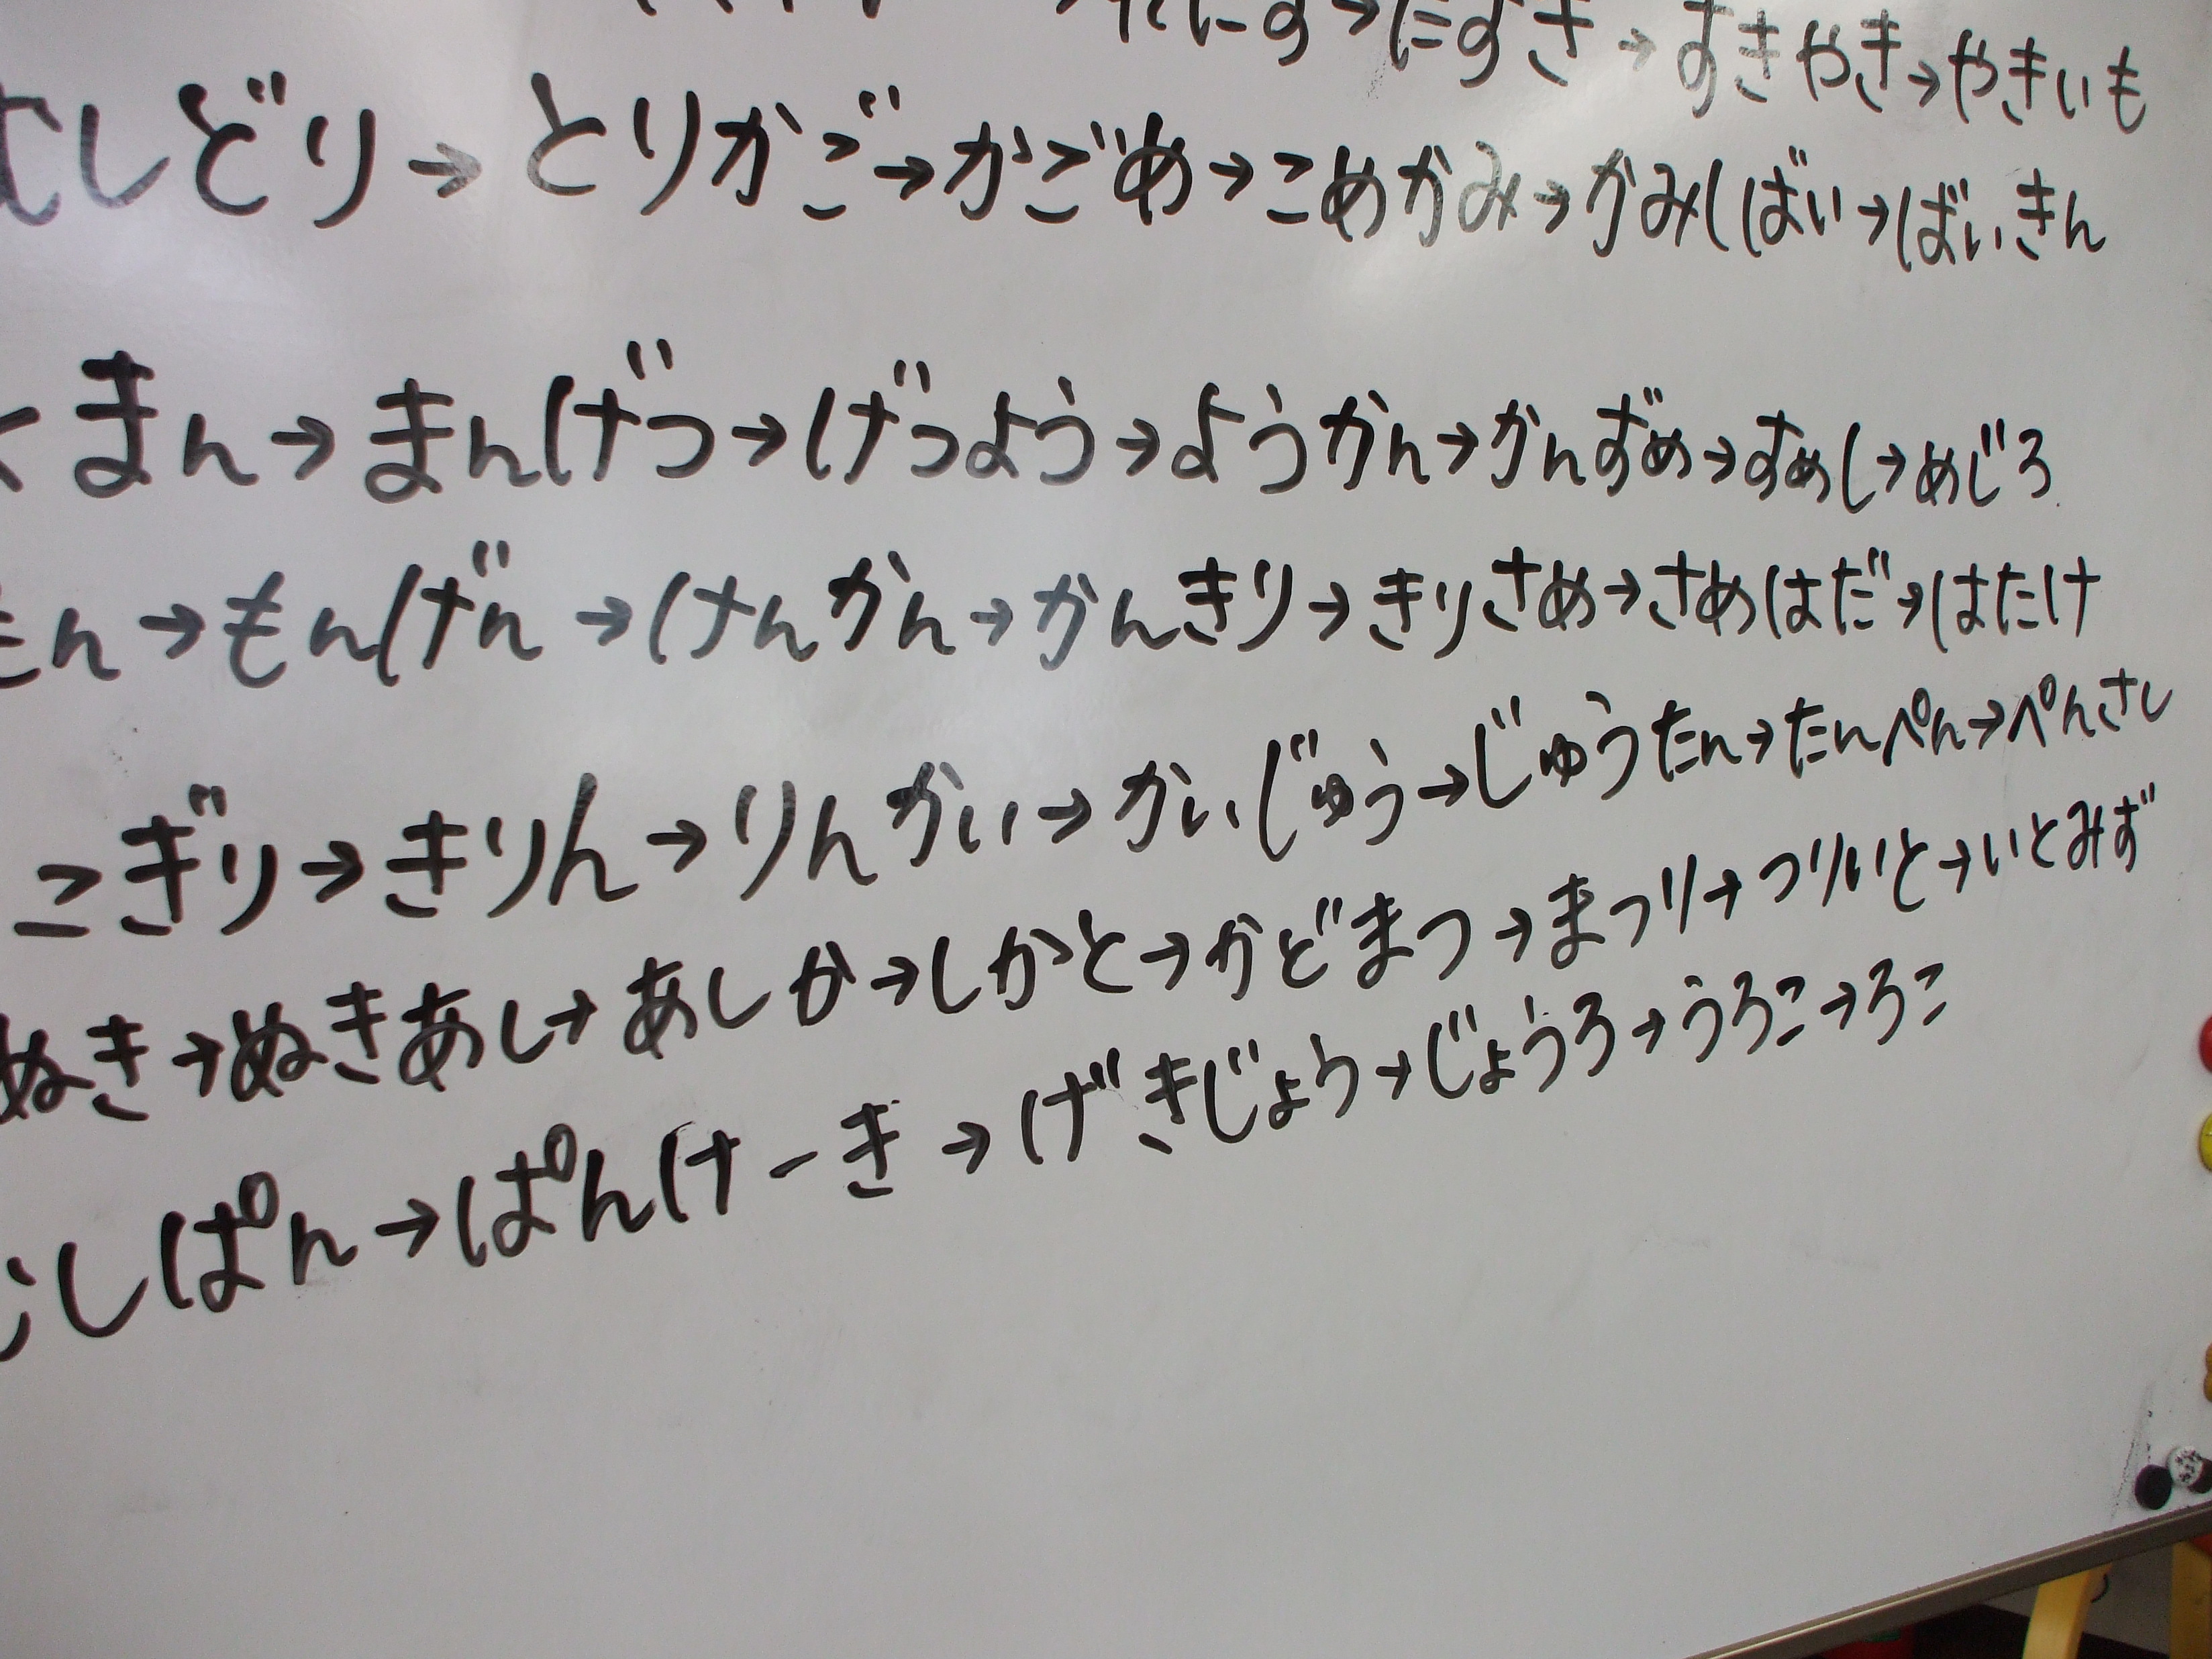 すきやき→やきいも
しどり→とりかご→かごめ→こめかみ→かみしばい→ばいきん
まん→まんげつ→げつよう→ようかん→かんずめ→すめし→めじろ
もん→もんげん→けんかん→かんきり→きりさめ→さめはだ→はたけ
こぎり→きりん→りんかい→かいじゅう→じゅうたん→たんぺん→ぺんさし
ぬき→ぬきあし→あしか→しかと→かどまつ→まつり→つりいと→いとみず
しぱん→ぱんけーき→げきじょう→じょうろ→うろこ→ろこ